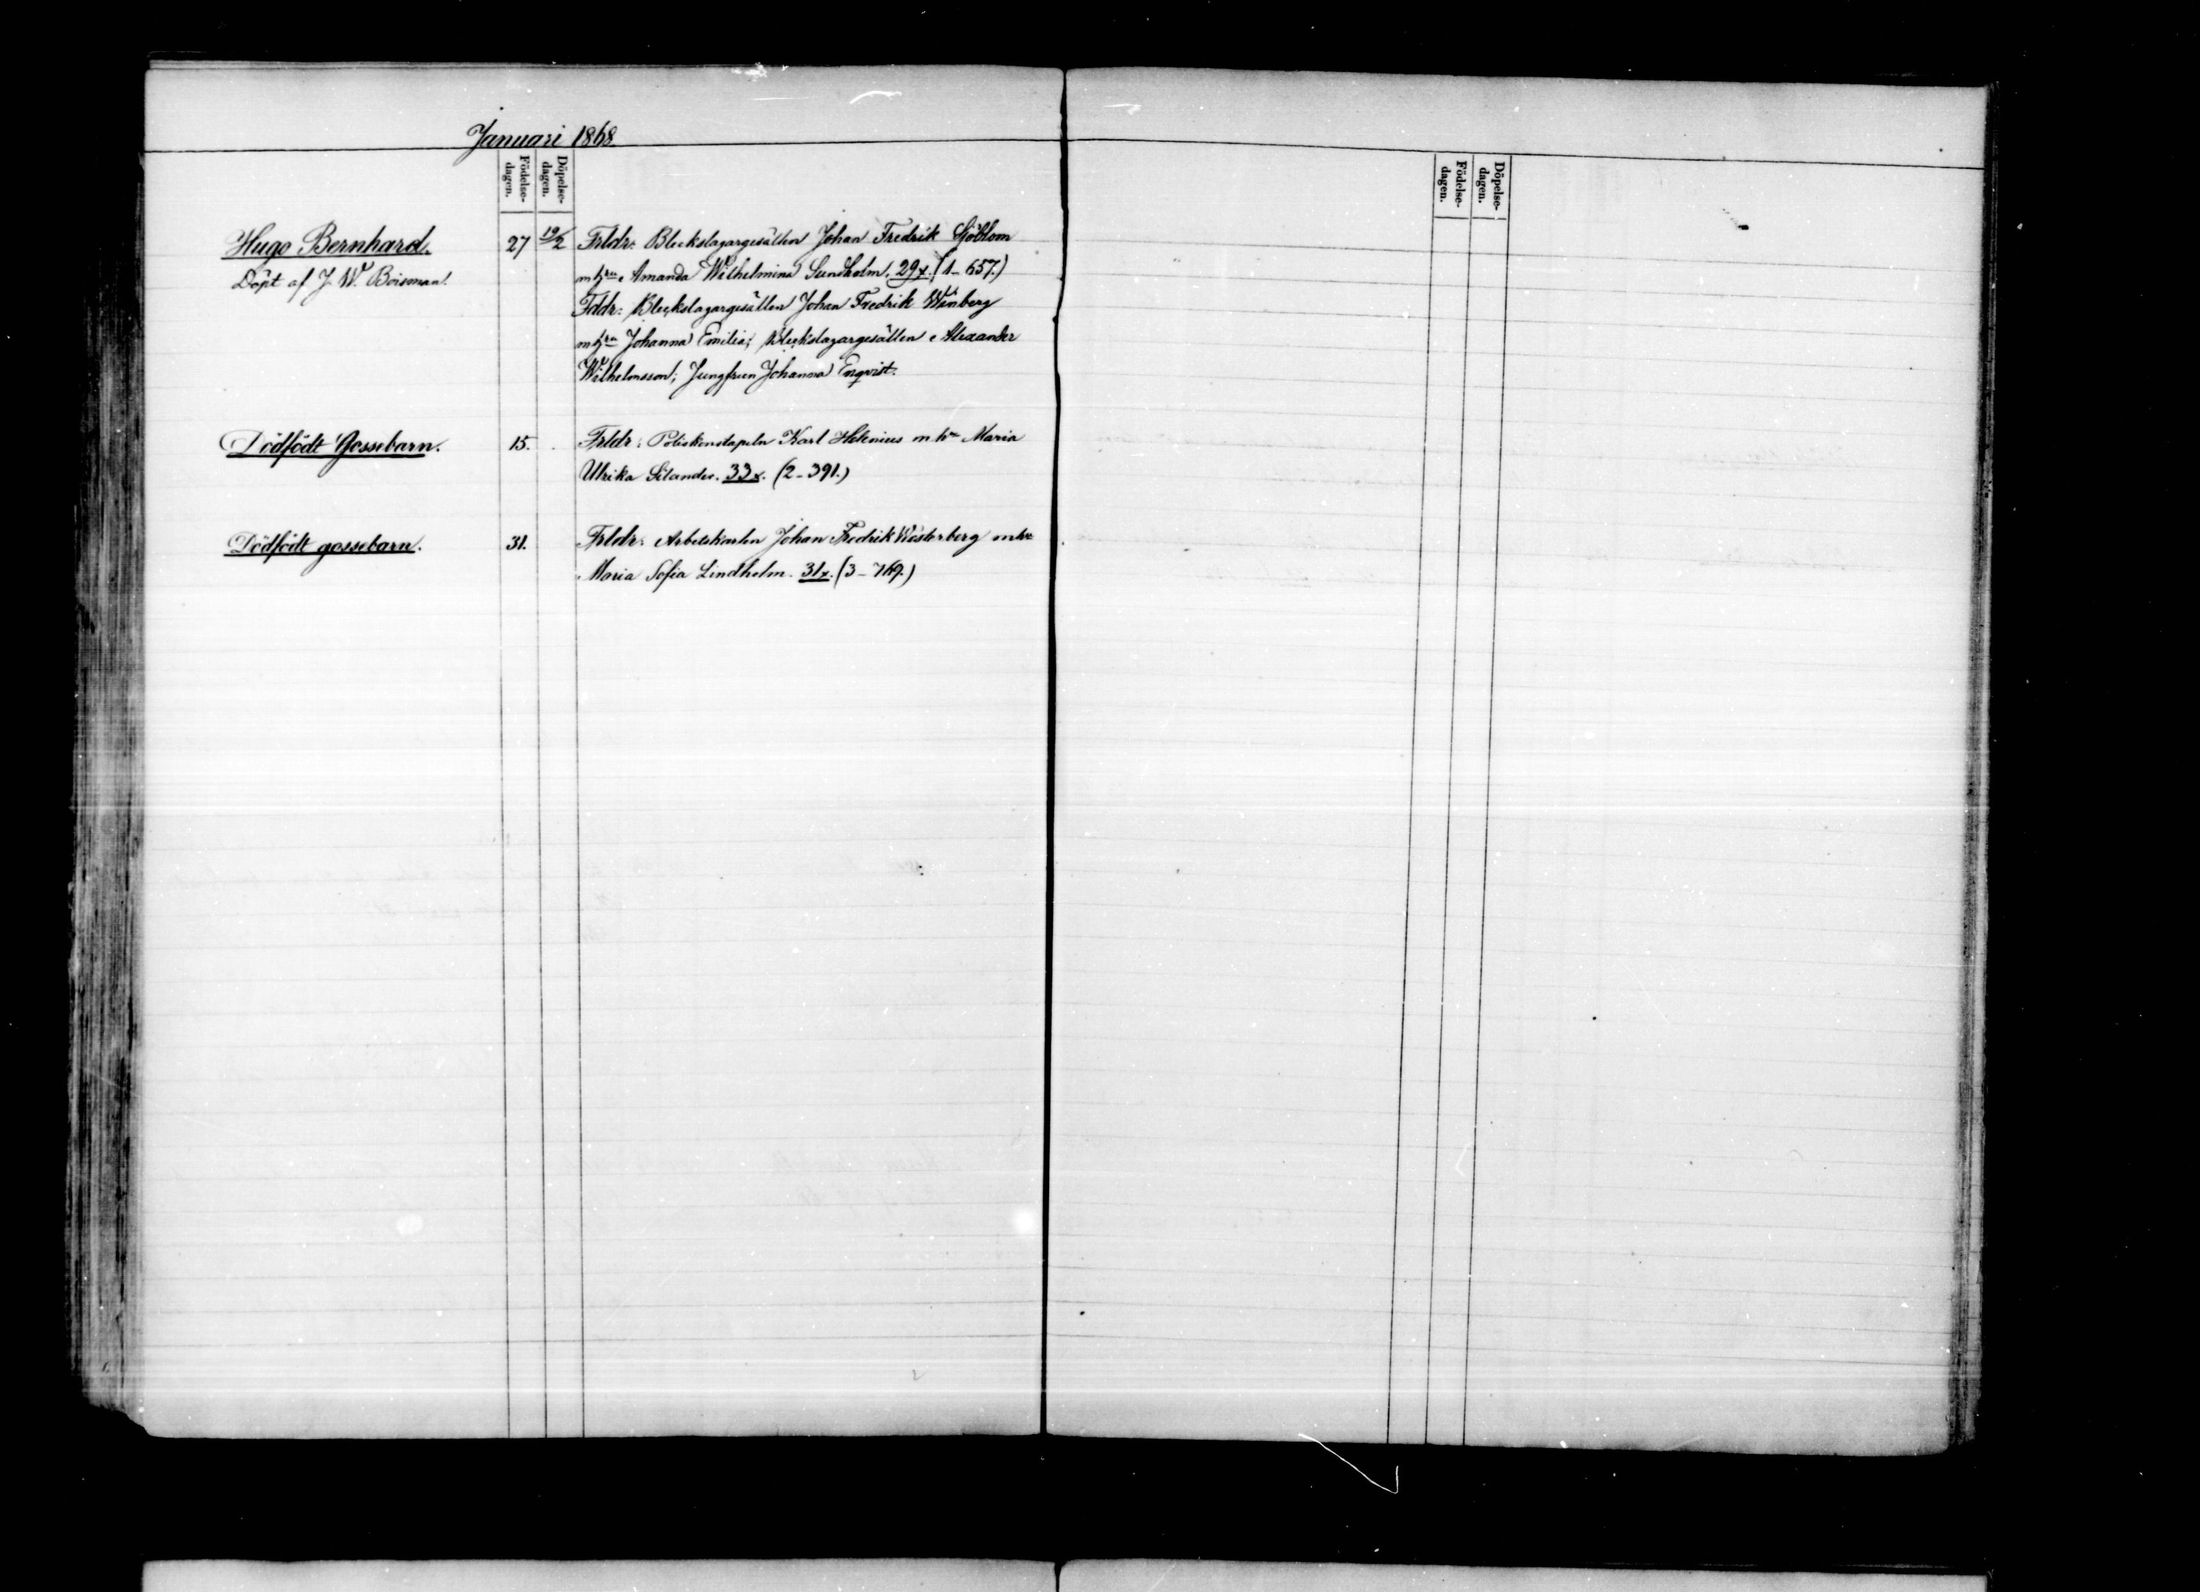 Januari 1868.
Födelse-
dagen.
Döpelse-
dagen.
Födelse-
dagen.
Döpelse-
dagen.
Hugo Bernhard. 27 19/2 Frldr: Bleckslagargesällen Johan Fredrik Sjöblom
Döpt af J. W. Boisman. m h:u Amanda Wilhelmina Sundholm. 29x. (1-657.)
Fddr: Bleckslagargesällen Johan Fredrik Winberg
m h:u Johanna Emilia; Bleckslagargesällen Alexander
Wilhelmsson; Jungfrun Johanna Enqvist.
Dödfödt Gossebarn. 15. Frldr: Poliskonstapeln Karl Helenius m. h:u Maria
Ulrika Silander. 33x. (2-391.)
Dödfödt gossebarn. 31. Frldr: Arbetskarlen Johan Fredrik Westerberg m h:u
Maria Sofia Lindholm. 31x. (3-769.)